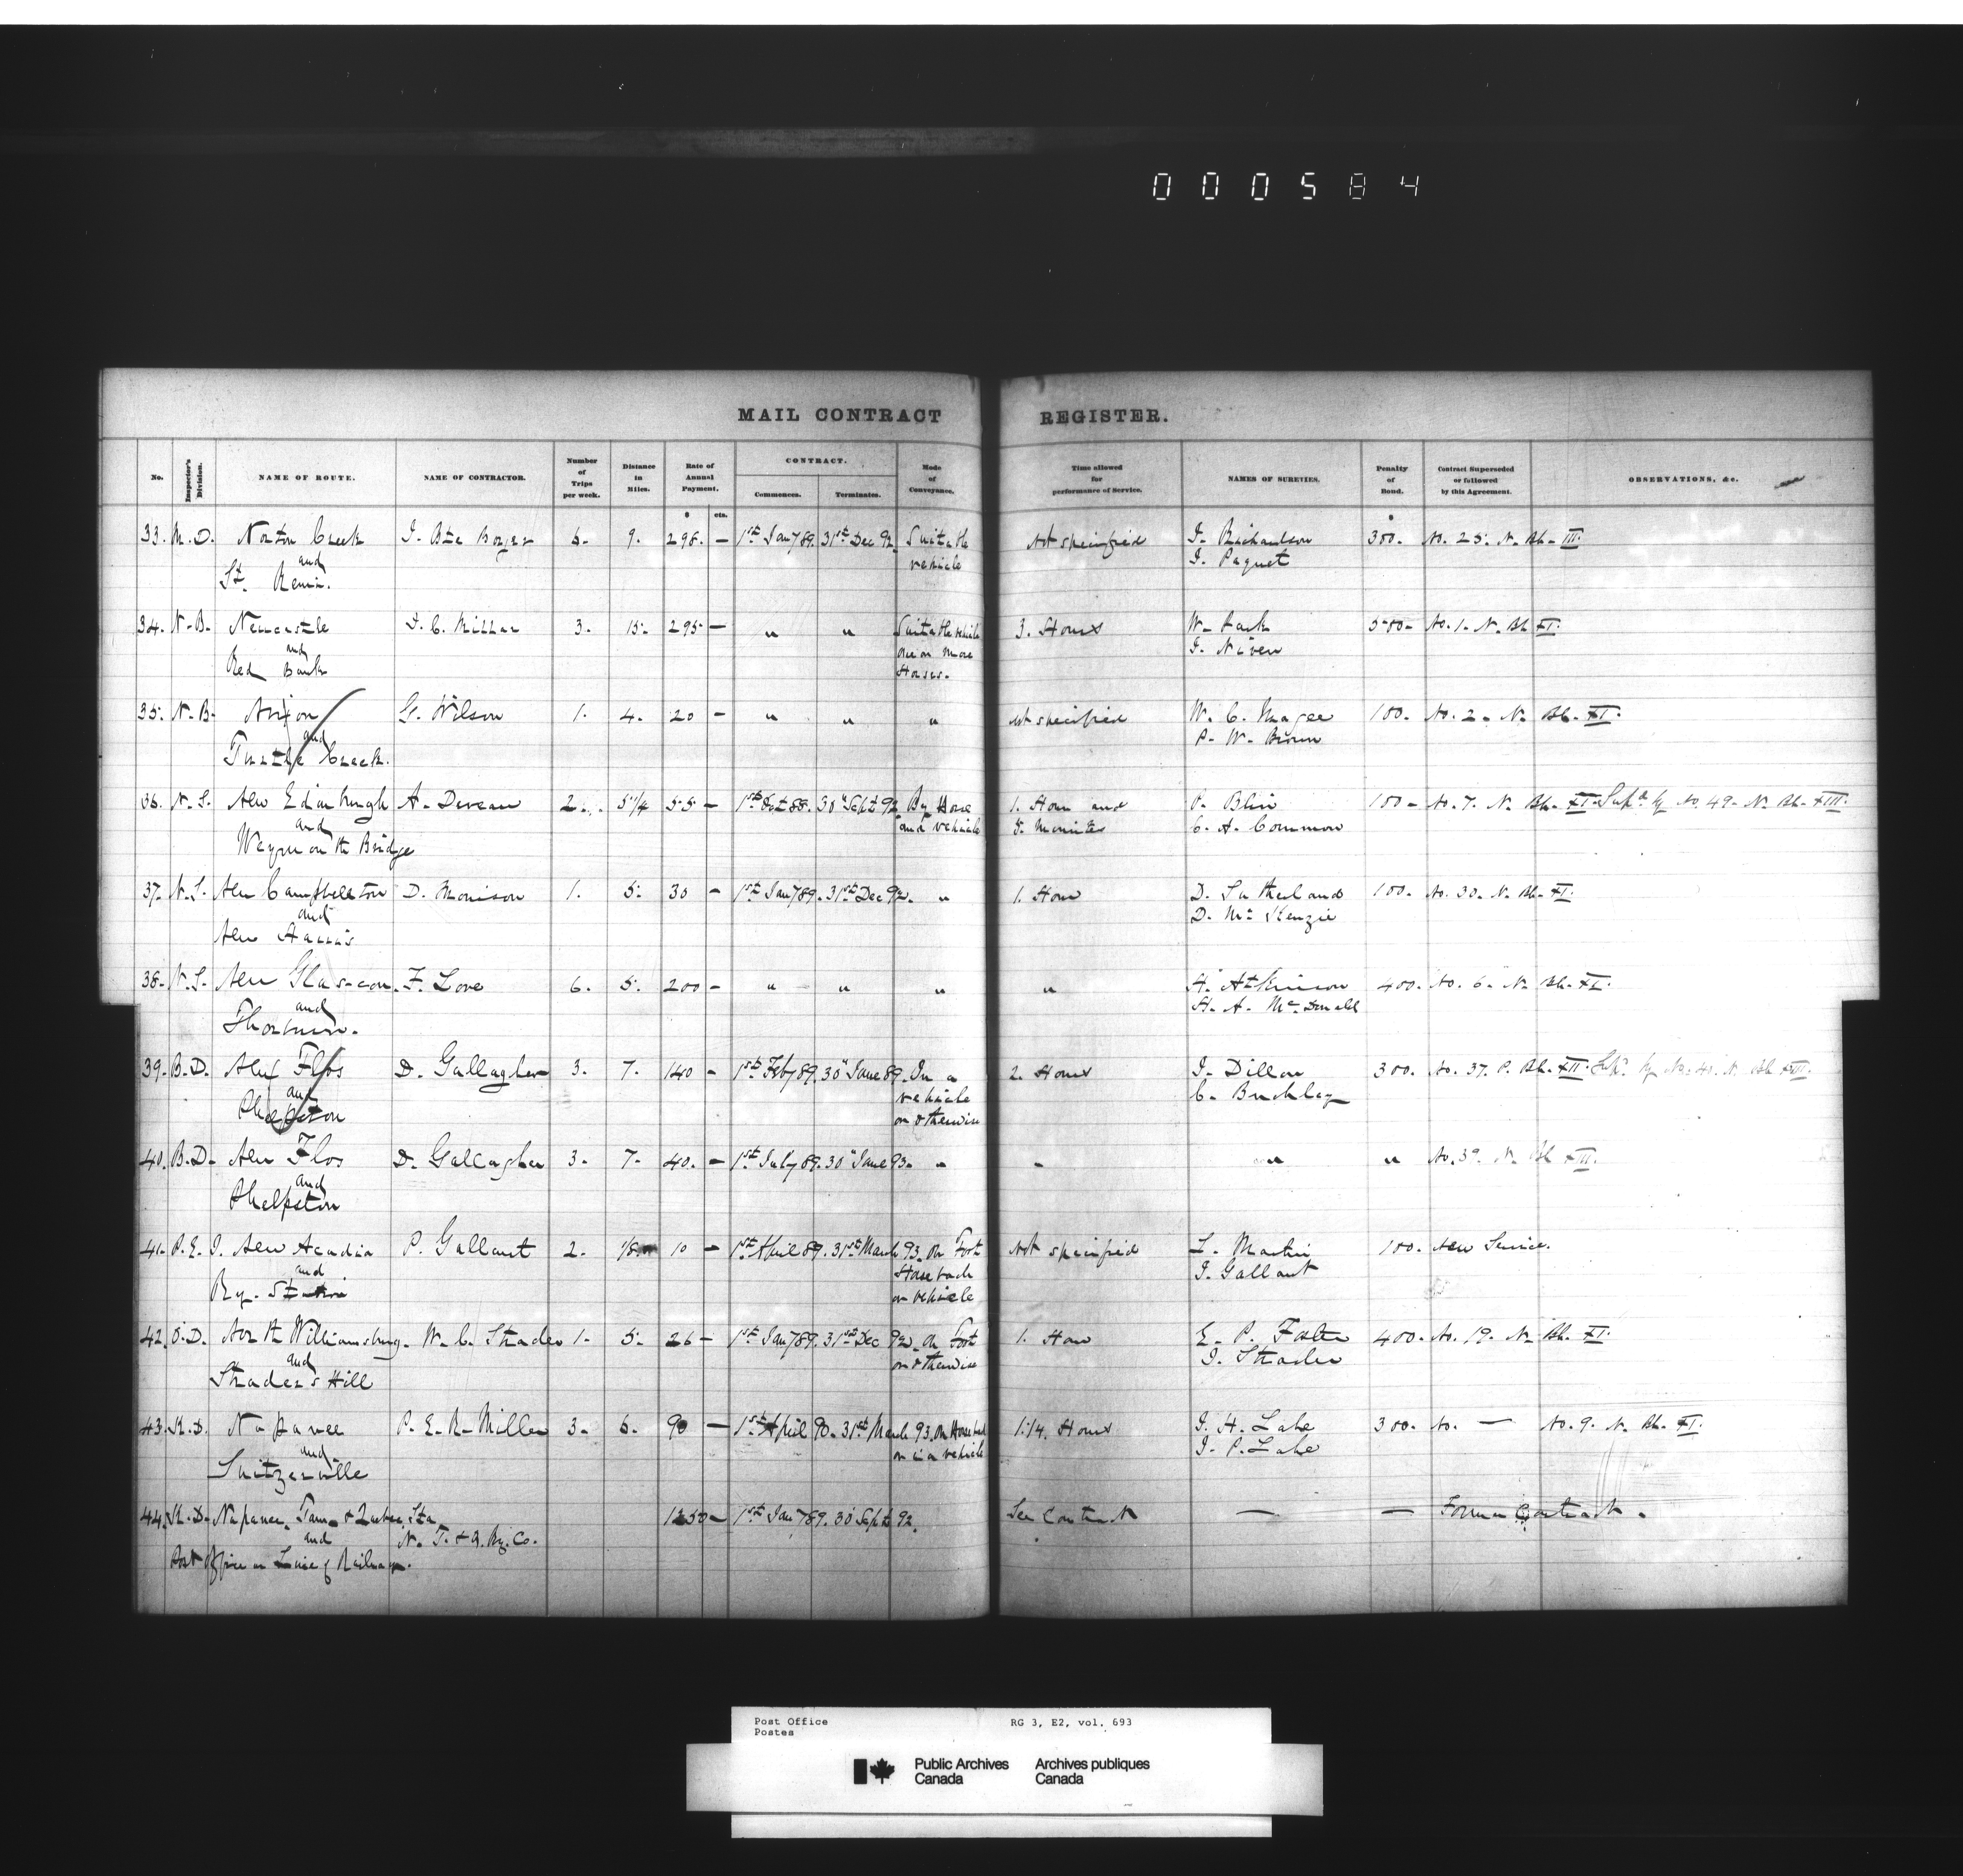 000584
MAIL CONTRACT REGISTER.
No. Inspector's Division. NAME OF ROUTE. NAME OF CONTRACTOR. Number of Trips per week. Distance in Miles. Rate of Annual Payment. CONTRACT. Commences. Terminates. Mode of Conveyance. Time allowed for performance of Service. NAMES OF SURETIES. Penalty of Bond. Contract Superseded or followed by this Agreement. OBSERVATIONS, &c.
$ cts. $
33. M.D. Norton Creek J. Bte Boyer 6. 9. 298. — 1st Jany 89. 31st Dec 92. Suitable Not specified J. Richardson 300. No. 25. N. Bk. III.
and vehicle J. Paquet
St. Remi.
34. N.B. Newcastle D. C. Millar 3. 15. 295 — " " Suitable vehicle 3. Hours W. Park 500. No. 1. N. Bk XI.
and one or more J. Niven
Red Bank Horses.
35. N.B. G. Wilson 1. 4. 20 — " " " Not specified W. C. Magee 100. No. 2. N. Bk. XI.
and P. W. Brown
Turtle Creek.
36. N.S. New Edinburgh A. Deveau 2. 5 1/4 55 — 1st Oct 88. 30" Sept 92 By Horse 1. Hour and P. Blin 100 — No. 7. N. Bk. XI. Supd by No. 49. N. Bk. XIII.
and and vehicle 5. Minutes C. A. Common
Weymouth Bridge
37. N.S. New Campbellton D. Morrison 1. 5. 30 — 1st Jany 89. 31st Dec 92. " 1. Hour D. Sutherland 100. No. 30. N. Bk. XI.
and D. McKenzie
New Harris
38. N.S. New Glasgow. F. Love 6. 5. 200 — " " " " H. Atkinson 400. No. 6. N. Bk. XI.
and H. A. McDonald
Thorburn.
39. B.D. New Flos D. Gallagher 3. 7. 140 — 1st Feby 89. 30" June 89. In a 2. Hours J. Dillon 300. No. 37. P. Bk. XII. Supd by No. 40. N. Bk XII.
and vehicle C. Buckley
Phelpston or otherwise
40. B.D. New Flos D. Gallagher 3. 7. 40. — 1st July 89. 30" June 93. " " " " No. 39. N. Bk XII.
and
Phelpston
41. P.E.I. New Acadia P. Gallant 2. 1/8 10 — 1st April 89. 31st March 93. On Foot Not specified L. Martin 100. New Service.
and Horseback J. Gallant
Ry. Station or vehicle
42. O.D. North Williamsburg. W. C. Strader 1. 5. 26 — 1st Jany 89. 31st Dec 92. On Foot 1. Hour E. P. Foster 400. No. 19. N. Bk. XI.
and or otherwise J. Strader
Strader's Hill
43. K.D. Napanee P. E. R. Miller 3. 6. 90 — 1st April 90. 31st March 93. On Horseback 1.1/4. Hours J. H. Lake 300. No. — No. 9. N. Bk. XI.
and or in a vehicle J. P. Lake
Switzerville
44. K.D. Napanee, Tam. & Quebec Sta. 1250 — 1st Jany 89. 30 Sept 92. See Contract — — Former Contract.
and N. T. & Q. Ry. Co.
Post Office on Line of Railway.
Post Office RG 3, E2, vol. 693
Postes
Public Archives Archives publiques
Canada Canada